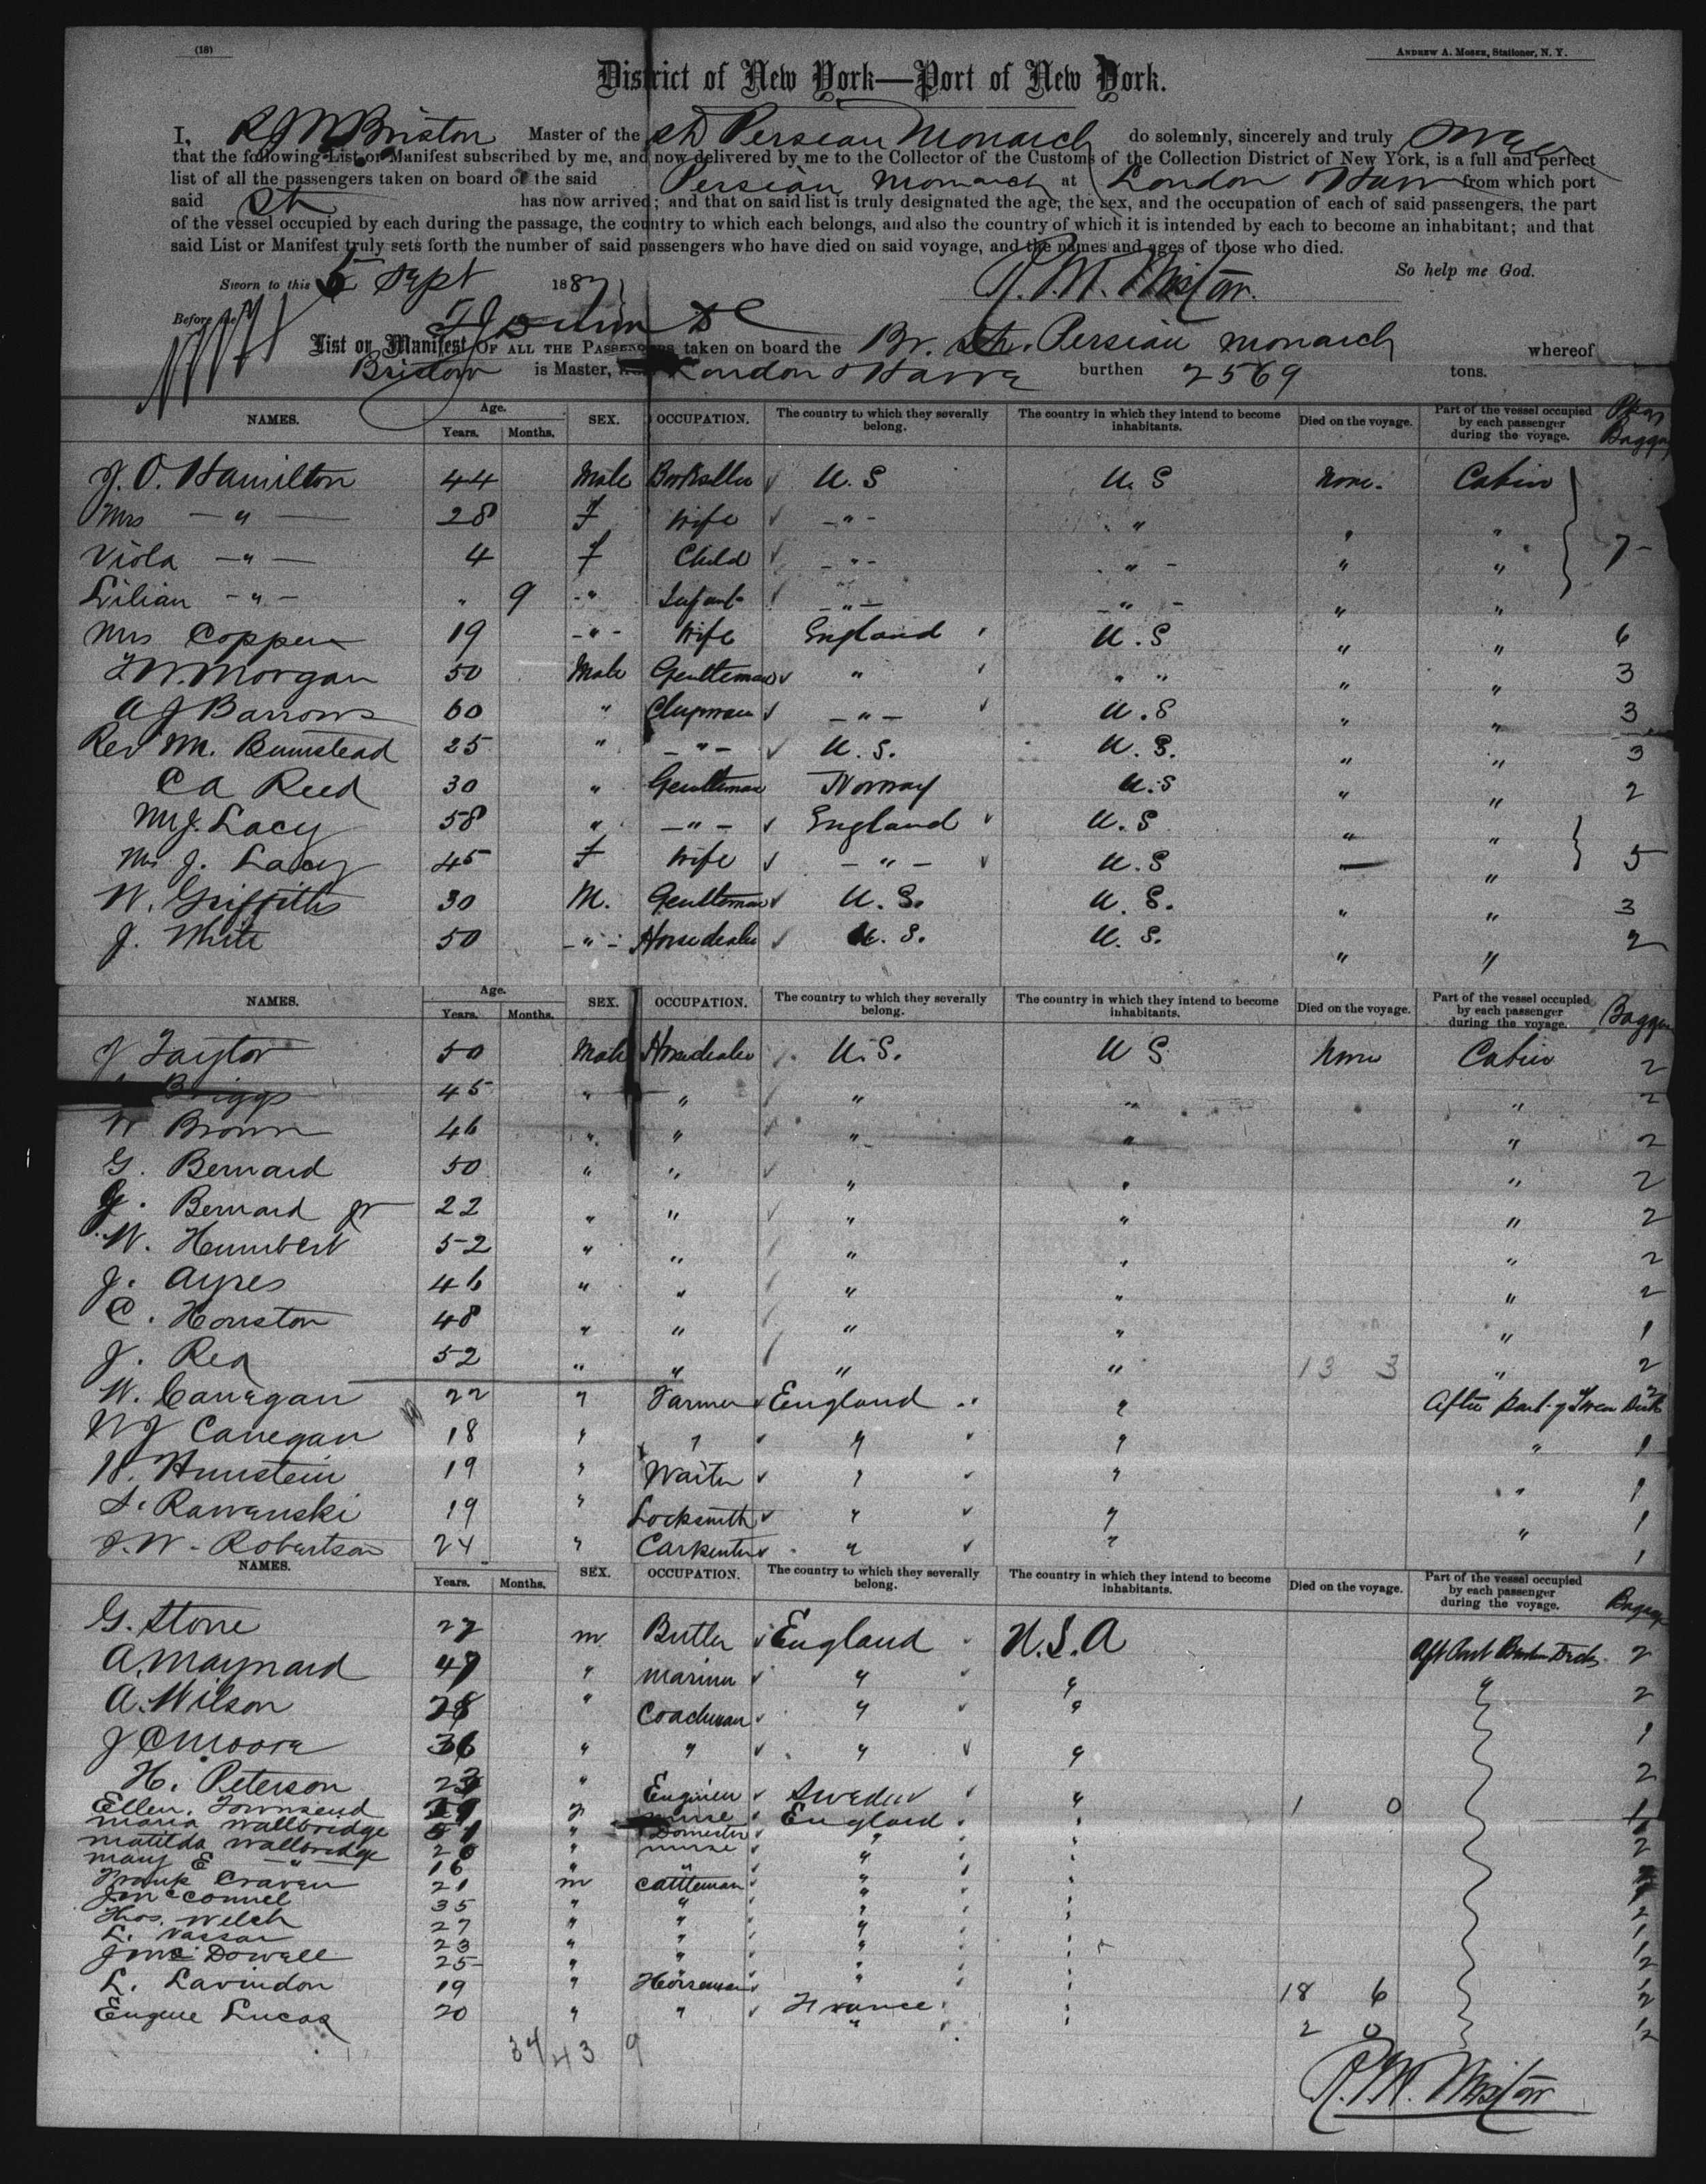 (18)
ANDREW A. MOSER, Stationer, N. Y.
District of New York—Port of New York.
I, Master of the Str Persian Monarch do solemnly, sincerely and truly swear
that the following List or Manifest subscribed by me, and now delivered by me to the Collector of the Customs of the Collection District of New York, is a full and perfect
list of all the passengers taken on board of the said Persian Monarch at London & Havre from which port
said Str has now arrived; and that on said list is truly designated the age, the sex, and the occupation of each of said passengers, the part
of the vessel occupied by each during the passage, the country to which each belongs, and also the country of which it is intended by each to become an inhabitant; and that
said List or Manifest truly sets forth the number of said passengers who have died on said voyage, and the names and ages of those who died.
So help me God.
Sworn to this 5 Sept 1887
Before me
List or Manifest OF ALL THE PASSENGERS taken on board the Br. Str. Persian Monarch whereof
Bristow is Master, London & Havre burthen 2569 tons.
NAMES. Age. Years. Months. SEX. OCCUPATION. The country to which they severally belong. The country in which they intend to become inhabitants. Died on the voyage. Part of the vessel occupied by each passenger during the voyage. Baggage
J. O. Hamilton 44 Male Bookseller U. S U. S None. Cabin
Mrs — " — 28 f Wife — " — " " "
Viola — " — 4 f Child — " — " " " 7
Lilian — " — " 9 " Infant — " — — " — " "
Mrs Coppen 19 — " — Wife England U. S " " 6
Morgan 50 Male Gentleman " " " " " 3
A J Barrows 60 " Clergyman — " — U. S " " 3
Rev M. Bumstead 25 " — " — U. S. U. S. " " 3
C A Reed 30 " Gentleman Norway U. S " " 2
Mr J. Lacy 58 " — " — England U. S " "
Mrs J. Lacy 45 f Wife — " — U. S — " 5
W. Griffiths 30 M. Gentleman U. S. U. S. " " 3
J. White 50 — " — Horsedealer U. S. U. S. " " 2
NAMES. Age. Years. Months. SEX. OCCUPATION. The country to which they severally belong. The country in which they intend to become inhabitants. Died on the voyage. Part of the vessel occupied by each passenger during the voyage. Baggage
J Taylor 50 Male Horsedealer U. S. U S None Cabin 2
Briggs 45 " " " " " 2
W Brown 46 " " " " " 2
G. Bernard 50 " " " " " 2
G. Bernard Jr 22 " " " " " 2
W. Humbert 52 " " " " " 2
J. Ayres 46 " " " " " 2
C. Houston 48 " " " " " 1
J. Rea 52 " " " " 13 3 " 2
W. Canegan 22 " Farmer England " After Part 2
W J Canegan 18 " " " " " 1
Hunstein 19 " Waiter " " " 1
S. Rawanski 19 " Locksmith " " " 1
J. W. Robertson 24 " Carpenter " " 1
NAMES. Years. Months. SEX. OCCUPATION. The country to which they severally belong. The country in which they intend to become inhabitants. Died on the voyage. Part of the vessel occupied by each passenger during the voyage. Baggage
G. Stone 27 m Butler England U. S. A Aft Part 2
A. Maynard 47 " Mariner " " " 2
A. Wilson 28 " Coachman " " 1
J C Moore 36 " " " " 2
H. Peterson 23 " Engineer Sweden " 1 0
Ellen Townsend f nurse England "
Maria Wallbridge 51 " Domestic " " 2
Matilda Wallbridge 20 " nurse " "
Mary E — " — 16 " " " "
Frank Craven 21 m Cattleman " "
J McConnel 35 " " " " 2
Thos. Welch 27 " " " " 1
L. Vassar 23 " " " "
J McDowell 25 " " " "
L. Lavindon 19 " Horseman " " 18 6 2
Eugene Lucas 20 " " France " 2 0
34 43 9